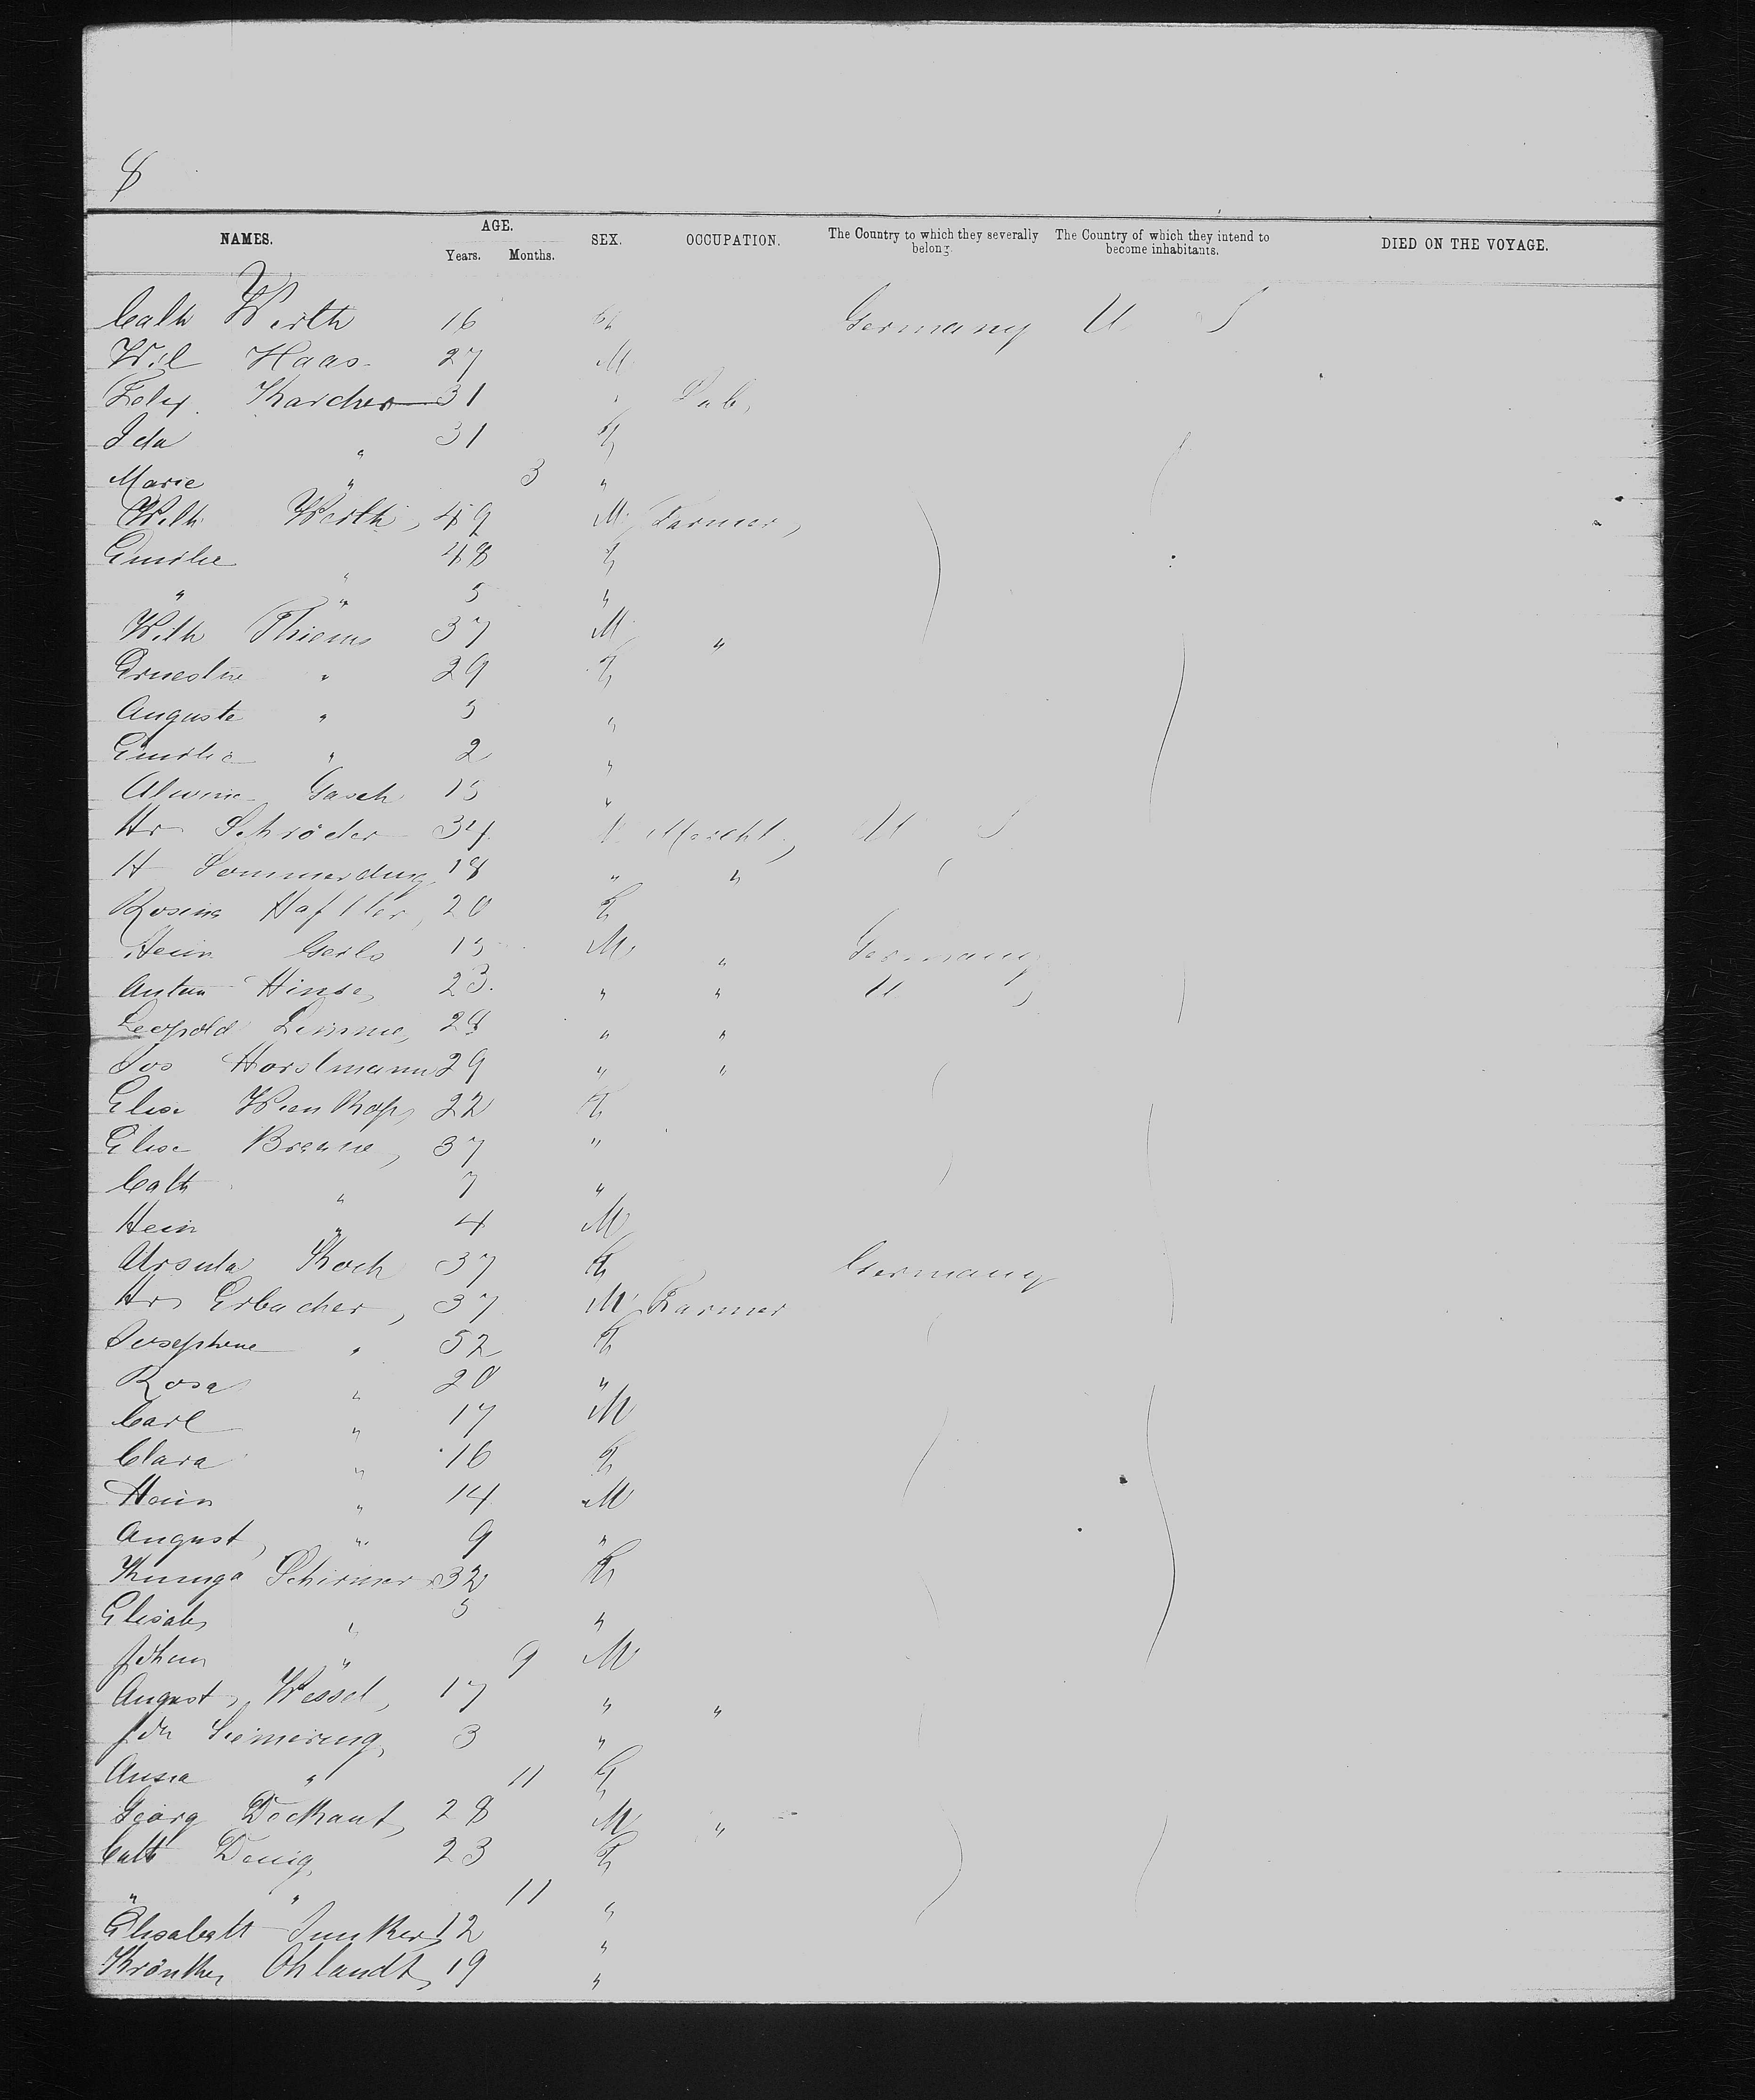 8
NAMES. AGE. Years. Months. SEX. OCCUPATION. The Country to which they severally belong. The Country of which they intend to become inhabitants. DIED ON THE VOYAGE.
Cath Werth 16 F Germany U S
Wil Haas 27 M
Felix Karcher 31 " Lab,
Ida " 31 F
Marie " 3 "
Wilh Werth, 49 M Farmer,
Emilie " 48 F
" " 5 "
Wilh Thiems 37 M "
Ernestine " 29 F
Auguste " 5 "
Emilie " 2 "
Alwine Gasch 15 "
Hr Schröder 34 M Mercht, U S
H 18 " "
Rosina 20 F
Hein Gerls 15 M " Germany
Anton Hinse, 23 " " U S
Leopold 28 " "
Jos Horstmann 29 " "
Elise 22 F
Elise 37 "
Cath " 7 "
Hein " 4 M
Ursula Koch 37 F Germany
Hr Erbacher, 37 M Farmer
Josephine " 52 F
Rosa " 20 "
Carl " 17 M
Clara " 16 F
Hein " 14 M
August, " 9 "
Schirmer 32 F
Elisab " 5 "
Johann " 9 M
August Wessel, 17 " "
Joh Siemering, 3 "
Anna " 11 F
Georg Deckant, 28 M "
Cath 23 F
" " 11 "
Elisabeth Junker 12 "
Ohlandt, 19 "